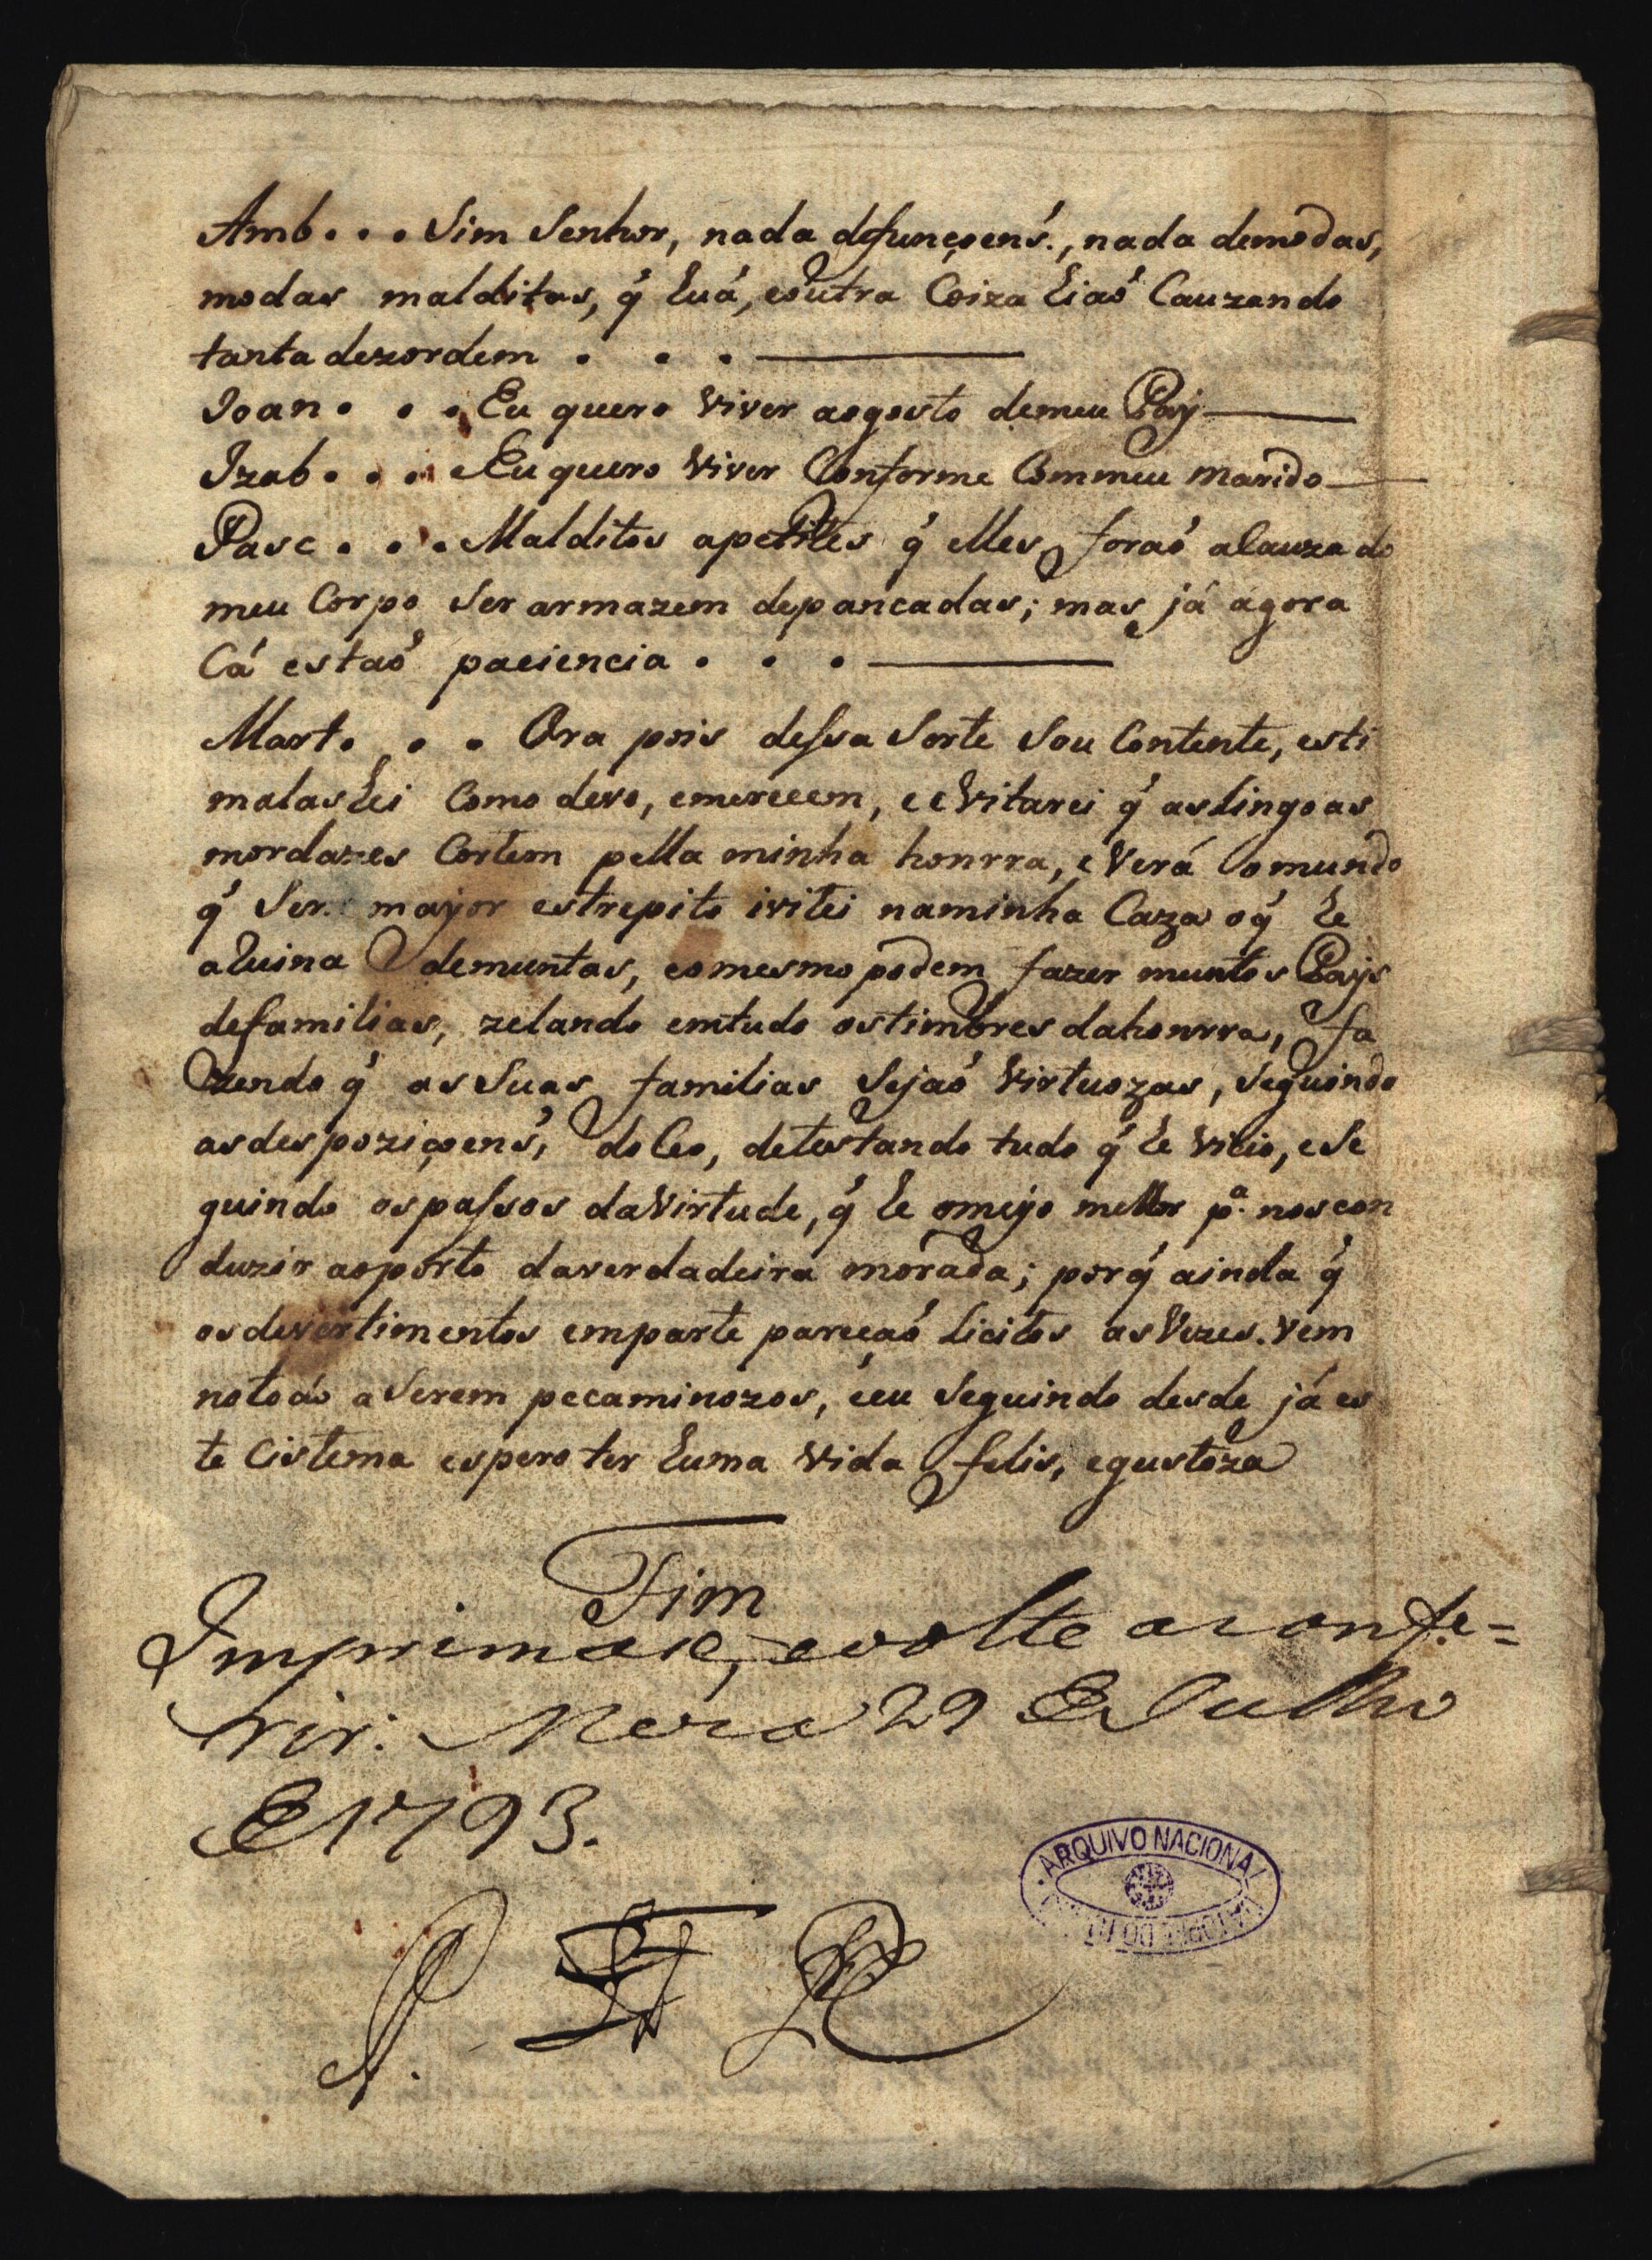 Amb. . . Sim Senhor, nada defunçoens., nada demodas,
modas malditas, q̃ huá, eoutra Coiza hiaõ Cauzando
tanta dezordem . . .
Joan. . . Eu quero viver aogosto demeu Pay
Izab. . . Eu quero viver Conforme Commeu marido
Pasc. . . Malditos apetites q̃ elles foraõ aCauza do
meu Corpo Ser armazem depancadas; mas já agora
Cá estaõ paciencia . . .
Mart. . . Ora pois dessa Sorte Sou Contente, esti
malashei Como devo, emerecem, e eVitarei q̃ aslingoas
mordazes Cortem pella minha honrra, eVerá omundo
q̃ Ser mayor estrepito ivitei naminha Caza oq̃ he
ahuina demuntas, eomesmo podem fazer muntos Pays
defamilias, zelando emtudo ostimbres dahonrra, fa
zendo q̃ as Suas familias Sejaõ Virtuozas, Seguindo
asdespoziçoens, do Ceo, detestando tudo q̃ he vicio, eSe
guindo ospassos daVirtude, q̃ he omeyo melhor pª. noscon
duzir aoporto daverdadeira morada; porq̃ ainda q̃
osdevertimentos emparte pareçaõ Licitos asVezes. vem
notodo aSerem pecaminozos, éeu Seguindo desde já es
te Cistema espero ter huma vida felis, egustoza
Fim
Imprimase, evolte aconfe=
rir. Meza 29 de Julho
de 1793.
ARQUIVO NACIONAL